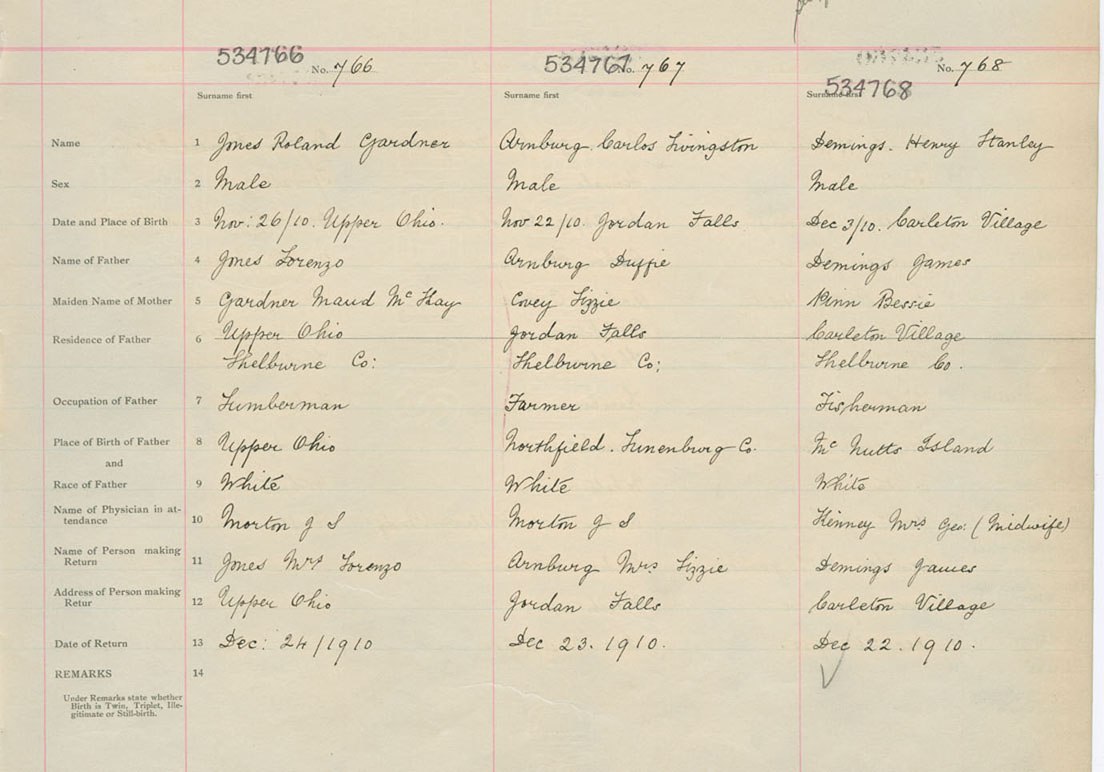 534766 No. 766
534767 No. 767
No. 768
534768
Surname first Surname first Surname first
Name 1 Jones Roland Gardner Arnburg. Carlos Livingston Demings. Henry Stanley
Sex 2 Male Male Male
Date and Place of Birth 3 Nov: 26/10. Upper Ohio. Nov 22/10. Jordan Falls Dec 3/10. Carleton Village
Name of Father 4 Jones Lorenzo Arnburg Duffie Demings James
Maiden Name of Mother 5 Gardner Maud Mc Kay Covey Lizzie Penn Bessie
Residence of Father 6 Upper Ohio Jordan Falls Carleton Village
Shelburne Co: Shelburne Co; Shelburne Co.
Occupation of Father 7 Lumberman Farmer Fisherman
Place of Birth of Father 8 Upper Ohio Northfield. Lunenburg Co. Mc Nutts Island
and
Race of Father 9 White White White
Name of Physician in at-
tendance 10 Morton J S Morton J S Kenney Mrs Geo: (Midwife)
Name of Person making
Return 11 Jones Mrs Lorenzo Arnburg Mrs Lizzie Demings James
Address of Person making
Retur 12 Upper Ohio Jordan Falls Carleton Village
Date of Return 13 Dec: 24/1910 Dec 23. 1910. Dec 22. 1910.
REMARKS 14
Under Remarks state whether
Birth is Twin, Triplet, Ille-
gitimate or Still-birth.